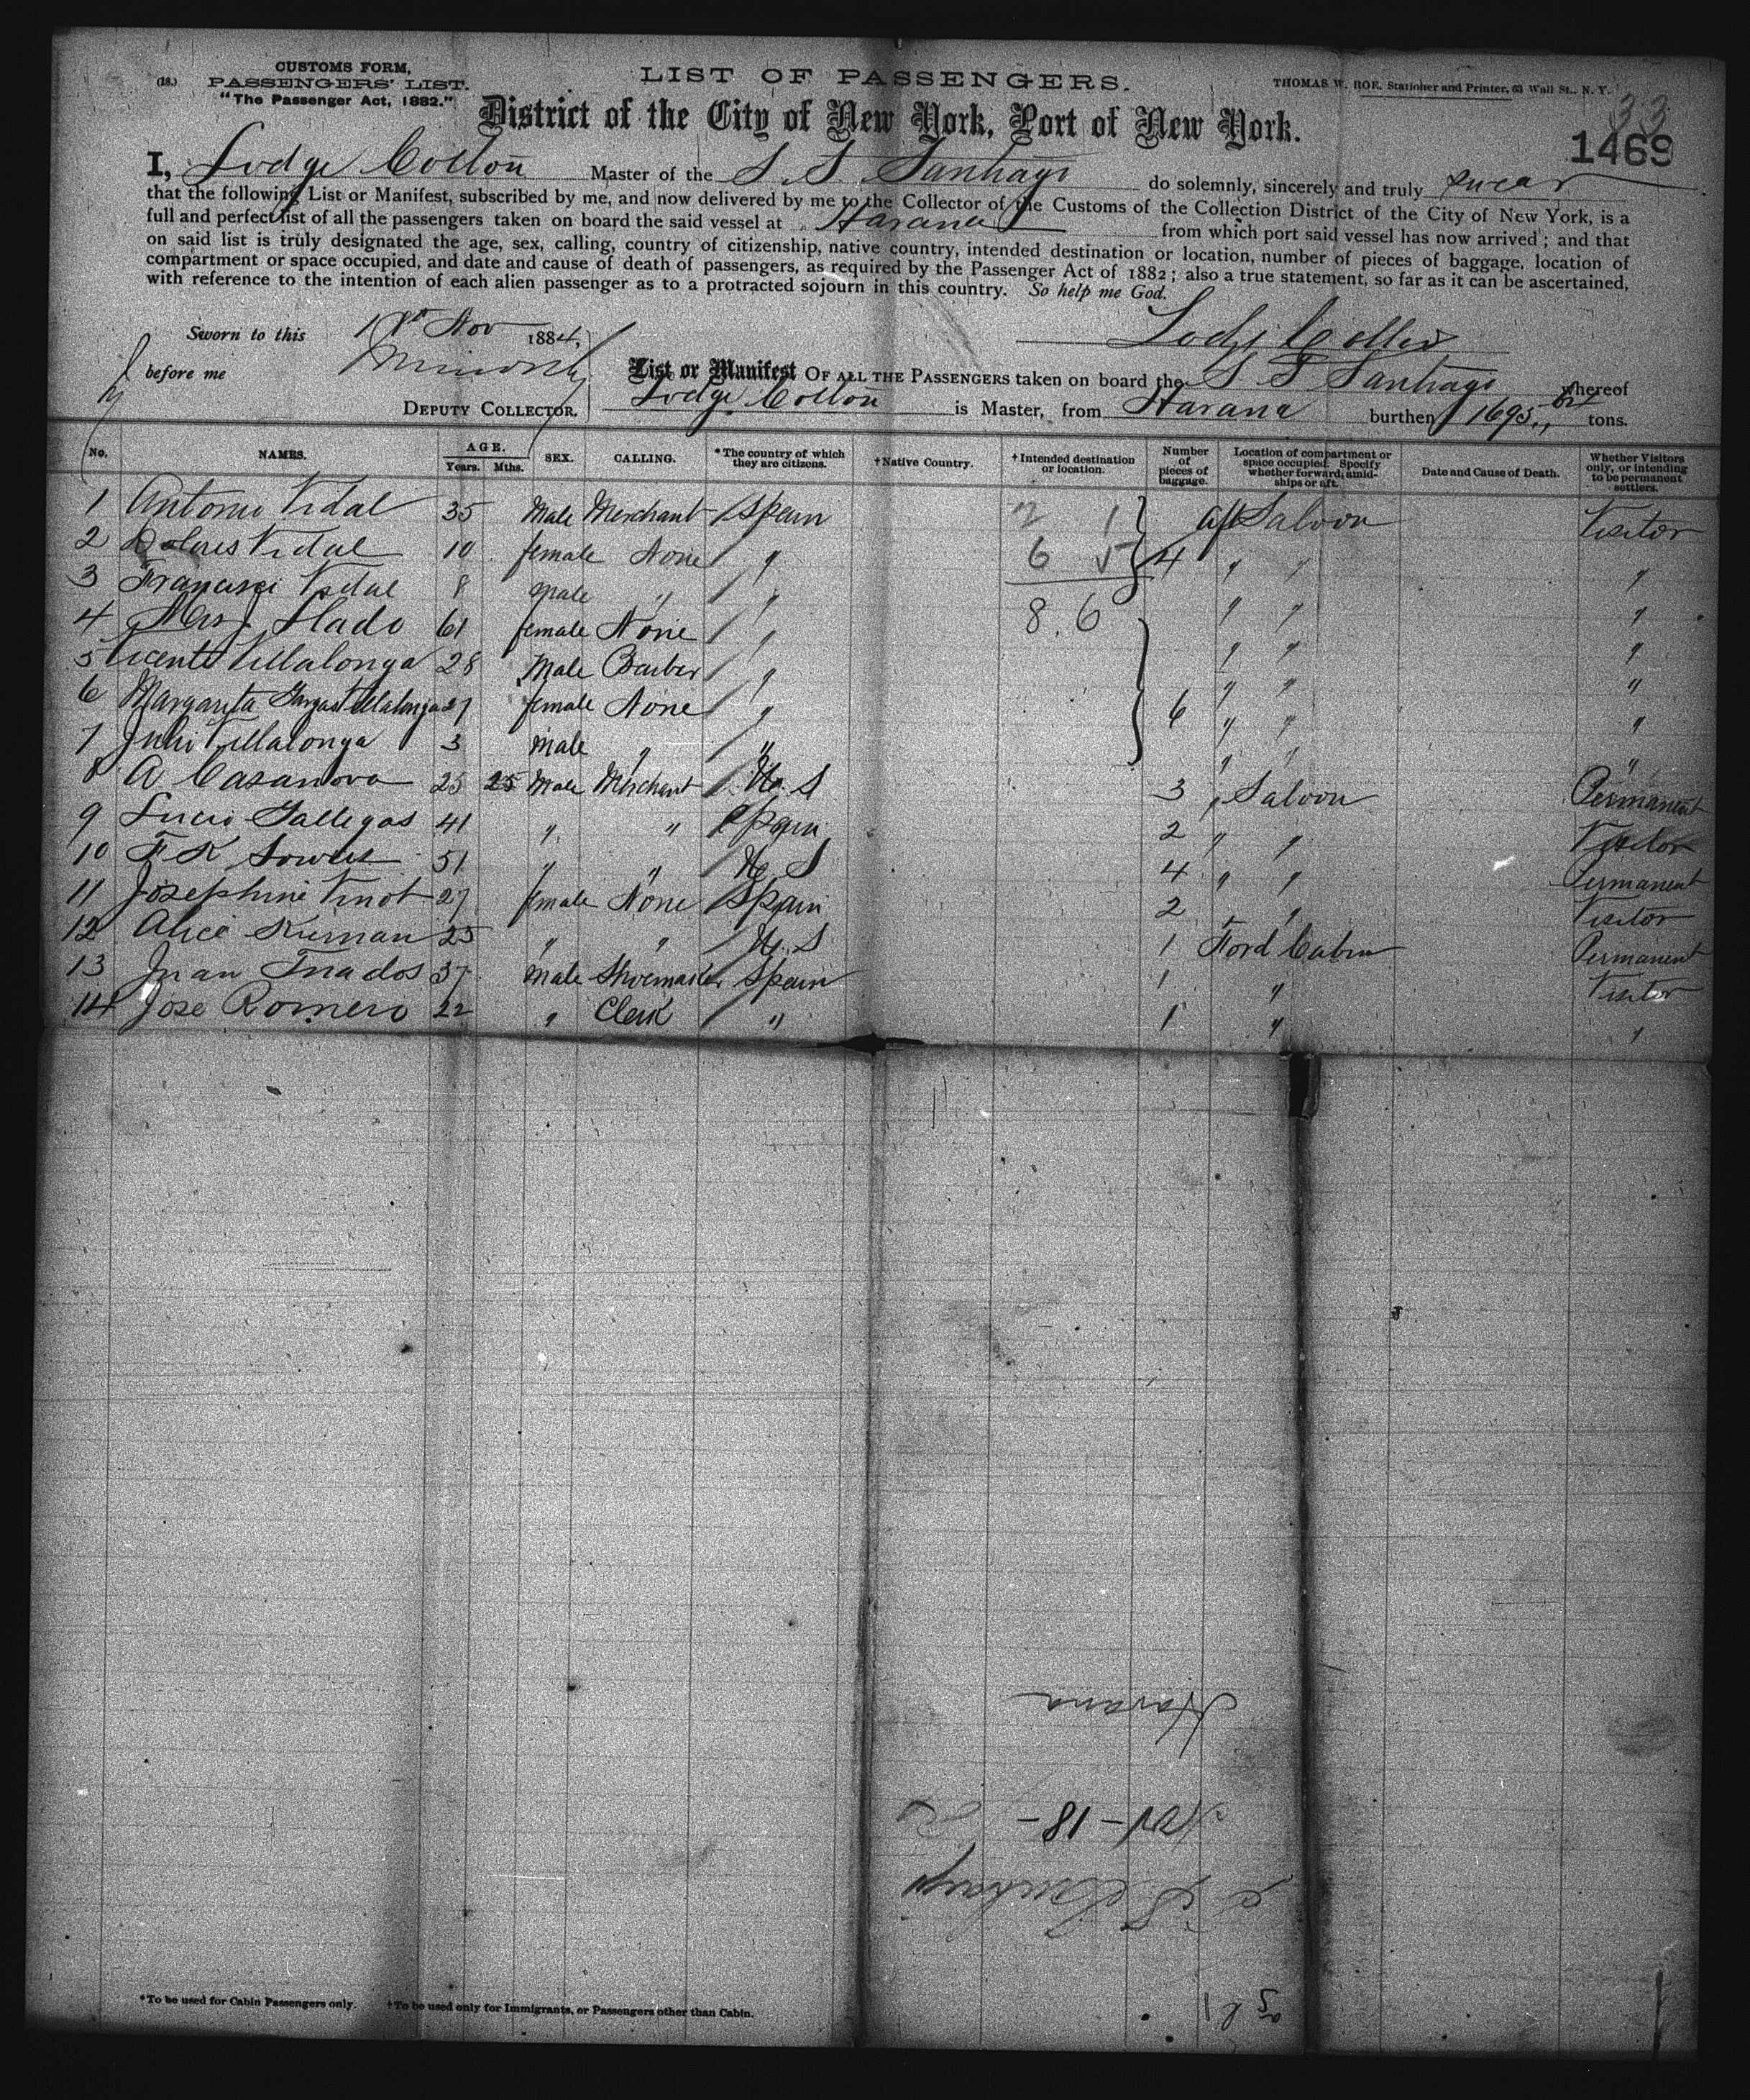 (18.)
CUSTOMS FORM,
PASSENGERS' LIST.
"The Passenger Act, 1882."
LIST OF PASSENGERS.
THOMAS W. ROE, Stationer and Printer, 63 Wall St., N. Y.
District of the City of New York, Port of New York.
33
1469
I, Lodge Colton Master of the S. S. Santiago do solemnly, sincerely and truly swear
that the following List or Manifest, subscribed by me, and now delivered by me to the Collector of the Customs of the Collection District of the City of New York, is a
full and perfect list of all the passengers taken on board the said vessel at Havana from which port said vessel has now arrived; and that
on said list is truly designated the age, sex, calling, country of citizenship, native country, intended destination or location, number of pieces of baggage, location of
compartment or space occupied, and date and cause of death of passengers, as required by the Passenger Act of 1882; also a true statement, so far as it can be ascertained,
with reference to the intention of each alien passenger as to a protracted sojourn in this country. So help me God.
Sworn to this 18th Nov 1884,
Lodge Colton
before me
DEPUTY COLLECTOR.
List or Manifest OF ALL THE PASSENGERS taken on board the S S Santiago whereof
Lodge Colton is Master, from Havana burthen 1695 tons.
No. NAMES. AGE. Years. Mths. SEX. CALLING. *The country of which they are citizens. †Native Country. †Intended destination or location. Number of pieces of baggage. Location of compartment or space occupied. Specify whether forward, amidships or aft. Date and Cause of Death. Whether Visitors only, or intending to be permanent settlers.
1 Antonio Vidal 35 Male Merchant Spain 2 1 Aft Saloon Visitor
2 Dolores Vidal 10 female None " 6 5 4 " " "
3 Vidal 8 male " " " " "
4 Mrs Llado 61 female None " 8. 6 " " "
5 Vicente Villalonga 28 Male Barber " " " "
6 Margarita Villalonga 27 female None " 6 " " "
7 Julio Villalonga 3 male " " " " "
8 A Casanova 25 25 Male Merchant U. S 3 " Saloon Permanent
9 Lucio Gallegos 41 " " Spain 2 " " Visitor
10 F K 51 " " U. S 4 " " Permanent
11 Josephine Vinot 27 female None Spain 2 " Visitor
12 Alice Kiernan 25 " " U. S 1 Ford Cabin Permanent
13 Juan 37 male Shoemaker Spain 1 " Visitor
14 Jose Romero 22 " Clerk " 1 " "
Havana
Nov-18-84
S. S. Santiago
*To be used for Cabin Passengers only. †To be used only for Immigrants, or Passengers other than Cabin.